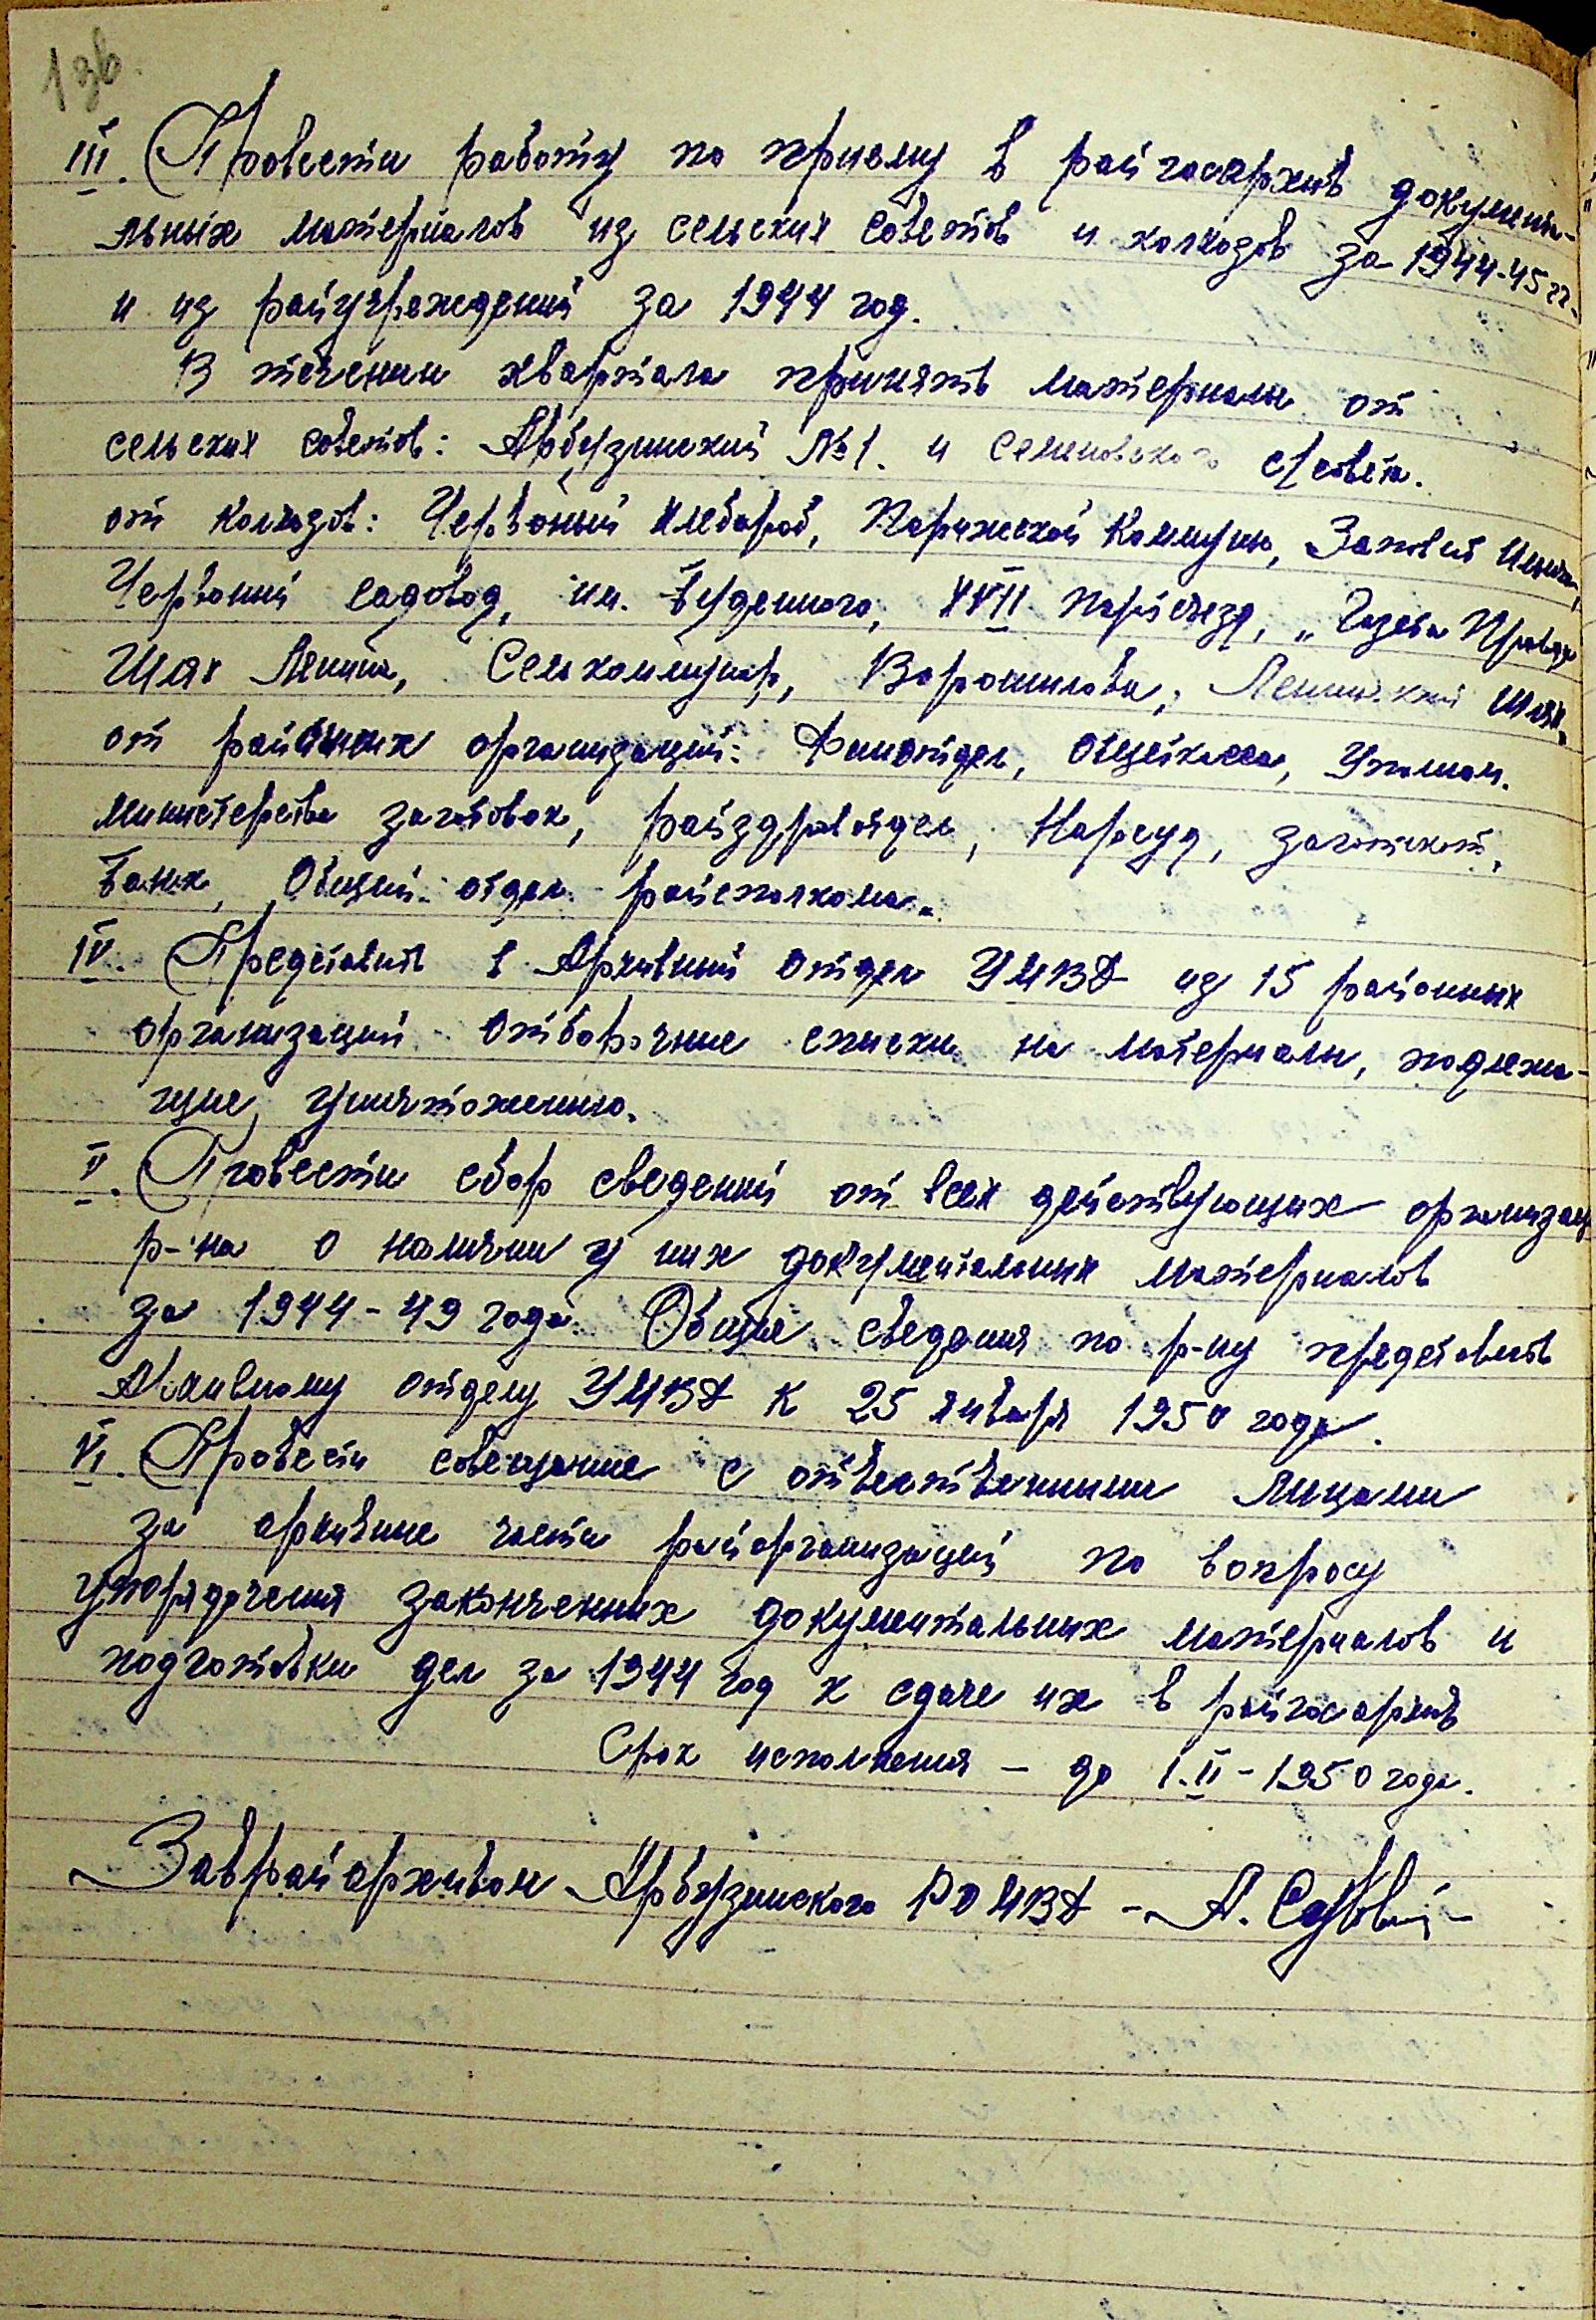 1зв.
III. Провести работу по приему в райгосархив документа-
льных материалов из сельских советов и колхозов за 1944-45 гг.
и из райучреждений за 1944 год.
В течении квартала принять материалы от
сельских советов: Арбузинский №1. и Семеновского с/совета.
от колхозов: Червоный хлебороб, Парижской Коммуны, Заповит Ильича,
Червоный садовод, им. Буденного, XVII партсъезд, „Газета Правда
Шлях Ленина, Селькоммунар, Ворошилова, Ленинский шлях.
от районных организаций: Финотдел, Общейкасса, Уполном.
министерства заготовок, райздравотдел, Нарсуд, заготскот,
Банк, Общий отдел райсполкома.
IV. Представить в Архивный отдел УМВД из 15 районных
организаций отборочные списки на материалы, подлежа-
щие уничтожению.
V. Провести сбор сведений от всех действующих организац
р-на о наличии у них документальных материалов
за 1944-49 года. Общие сведения по р-ну представить
Архивному отделу УМВД к 25 января 1950 года.
VI. Провести совещание с ответственными лицами
за архивные части райорганизаций по вопросу
упорядочения законченных документальных материалов и
подготовки дел за 1944 год к сдаче их в райгосархив
Срок исполнения – до 1.II-1950 года.
Заврайархивом Арбузинского РО МВД - А.